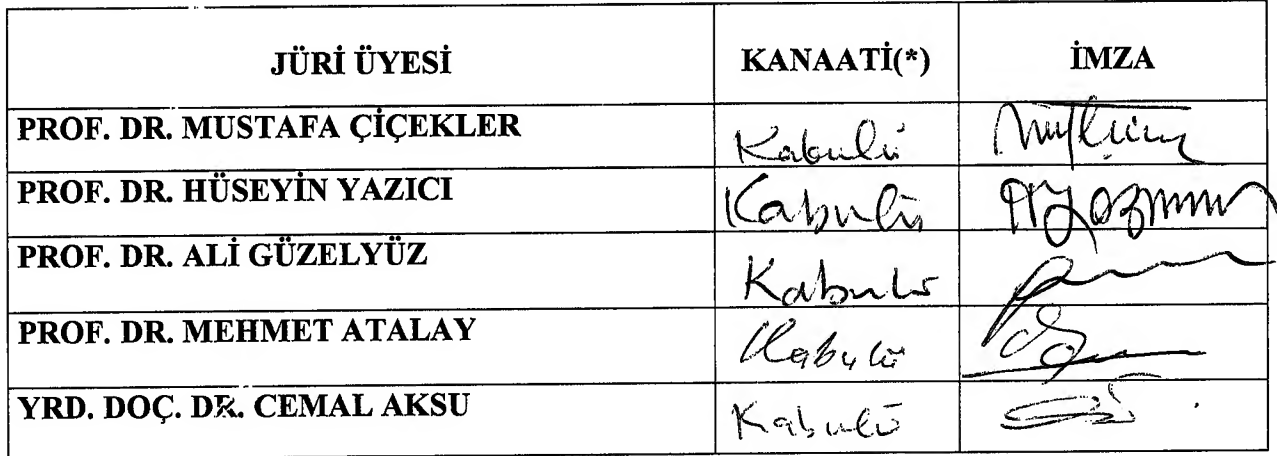 JÜRİ ÜYESİ KANAATİ(*) İMZA
PROF. DR. MUSTAFA ÇİÇEKLER Kabulü
PROF. DR. HÜSEYİN YAZICI Kabulü
PROF. DR. ALİ GÜZELYÜZ Kabulü
PROF. DR. MEHMET ATALAY Kabulü
YRD. DOÇ. DR. CEMAL AKSU Kabulü